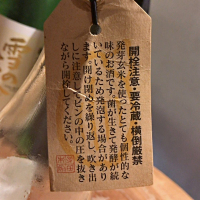 開栓注意・要冷蔵・横倒厳禁
発芽玄米を使ったとても個性的な
味のお酒です。菌が生きて発酵が続
いているため発泡する場合があり
ます。開け閉めを繰り返し、吹き出
しに注意してビンの中の圧を抜き
ながら開栓してください。